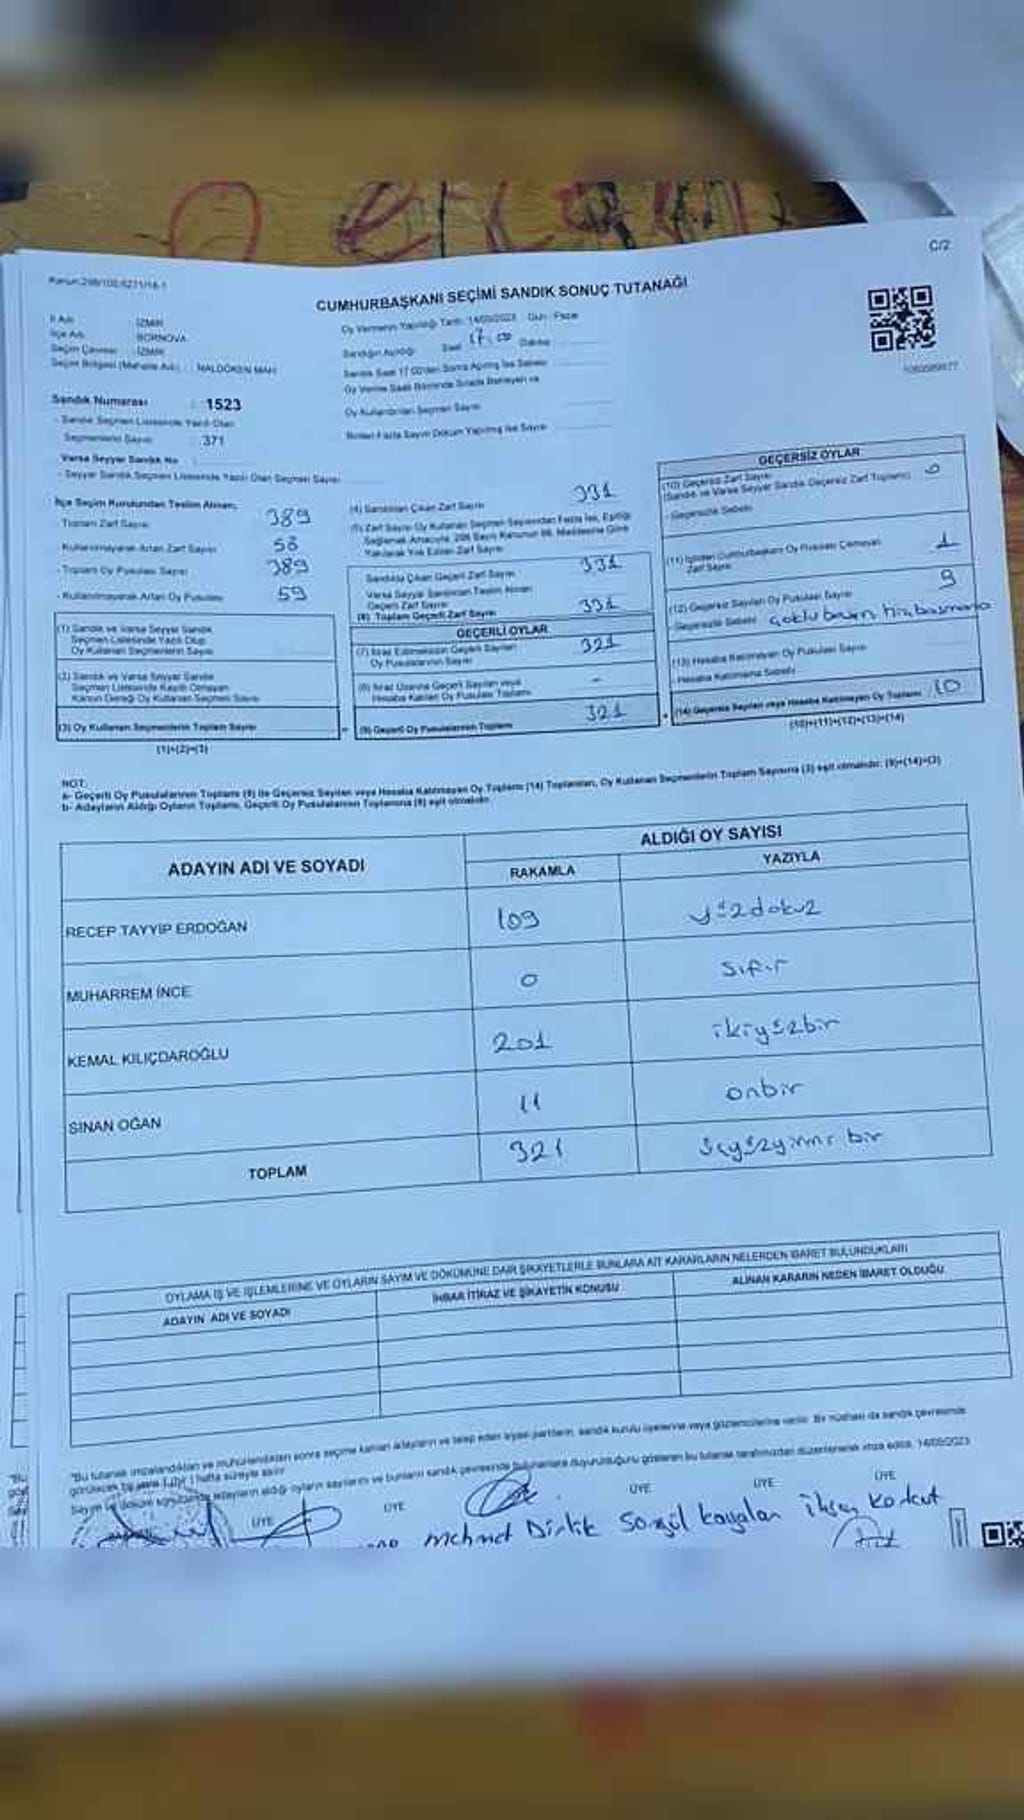 C/2
CUMHURBAŞKANI SEÇİMİ SANDIK SONUÇ TUTANAĞI
İl Adı : İZMİR
İlçe Adı : BORNOVA
Seçim Çevresi : İZMİR
Seçim Bölgesi (Mahalle Adı) : NALDÖKEN MAH
Oy Vermenin Yapıldığı Tarih: 14/05/2023 Gün: Pazar
Sandığın Açıldığı Saat 17.00 Dakika
Sandık Saat 17.00'den Sonra Açılmış İse Sebebi
Oy Kullandırılan Seçmen Sayısı
Birden Fazla Sayım Döküm Yapılmış İse Sayısı
Sandık Numarası : 1523
- Sandık Seçmen Listesinde Yazılı Olan
Seçmenlerin Sayısı : 371
Varsa Seyyar Sandık No
- Seyyar Sandık Seçmen Listesinde Yazılı Olan Seçmen Sayısı
İlçe Seçim Kurulundan Teslim Alınan;
- Toplam Zarf Sayısı 389
- Kullanılmayarak Artan Zarf Sayısı 58
- Toplam Oy Pusulası Sayısı 389
- Kullanılmayarak Artan Oy Pusulası 59
(1) Sandık ve Varsa Seyyar Sandık
Seçmen Listesinde Yazılı Olup
Oy Kullanan Seçmenlerin Sayısı
(2) Sandık ve Varsa Seyyar Sandık
Seçmen Listesinde Kayıtlı Olmayan
Kanun Gereği Oy Kullanan Seçmen Sayısı
(3) Oy Kullanan Seçmenlerin Toplam Sayısı
(1)+(2)=(3)
(4) Sandıktan Çıkan Zarf Sayısı 331
(5) Zarf Sayısı Oy Kullanan Seçmen Sayısından Fazla İse, Eşitliği
Sağlamak Amacıyla, 298 Sayılı Kanunun 98. Maddesine Göre
Yakılarak Yok Edilen Zarf Sayısı
Sandıkta Çıkan Geçerli Zarf Sayısı 331
Varsa Seyyar Sandıktan Teslim Alınan
Geçerli Zarf Sayısı
(6) Toplam Geçerli Zarf Sayısı 331
GEÇERLİ OYLAR
(7) İtiraz Edilmeksizin Geçerli Sayılan
Oy Pusulalarının Sayısı 321
(8) İtiraz Üzerine Geçerli Sayılan veya
Hesaba Katılan Oy Pusulası Toplamı -
(9) Geçerli Oy Pusulalarının Toplamı 321
GEÇERSİZ OYLAR
(10) Geçersiz Zarf Sayısı 0
(Sandık ve Varsa Seyyar Sandık Geçersiz Zarf Toplamı)
- Geçersizlik Sebebi
(11) İçinden Cumhurbaşkanı Oy Pusulası Çıkmayan
Zarf Sayısı 1
(12) Geçersiz Sayılan Oy Pusulası Sayısı 9
- Geçersizlik Sebebi
(13) Hesaba Katılmayan Oy Pusulası Sayısı
- Hesaba Katılmama Sebebi
(14) Geçersiz Sayılan veya Hesaba Katılmayan Oy Toplamı 10
(10)+(11)+(12)+(13)=(14)
NOT:
a- Geçerli Oy Pusulalarının Toplamı (9) ile Geçersiz Sayılan veya Hesaba Katılmayan Oy Toplamı (14) Toplamları, Oy Kullanan Seçmenlerin Toplam Sayısına (3) eşit olmalıdır. (9)+(14)=(3)
b- Adayların Aldığı Oyların Toplamı, Geçerli Oy Pusulalarının Toplamına (9) eşit olmalıdır.
ADAYIN ADI VE SOYADI ALDIĞI OY SAYISI
RAKAMLA YAZIYLA
RECEP TAYYİP ERDOĞAN 109 yüzdokuz
MUHARREM İNCE 0 sıfır
KEMAL KILIÇDAROĞLU 201 ikiyüzbir
SİNAN OĞAN 11 onbir
TOPLAM 321 üçyüzyirmi bir
OYLAMA İŞ VE İŞLEMLERİNE VE OYLARIN SAYIM VE DÖKÜMÜNE DAİR ŞİKAYETLERLE BUNLARA AİT KARARLARIN NELERDEN İBARET BULUNDUKLARI
ADAYIN ADI VE SOYADI İHBAR İTİRAZ VE ŞİKAYETİN KONUSU ALINAN KARARIN NEDEN İBARET OLDUĞU
"Bu tutanak imzalandıktan ve mühürlendikten sonra seçime katılan adayların ve talep eden siyasi partilerin, sandık kurulu üyelerine veya gözlemcilerine verilir. Bir nüshası da sandık çevresinde
görülecek bir yere 1 (bir) hafta süreyle asılır
ÜYE ÜYE ÜYE ÜYE ÜYE
Mehmet Dirlik Songül İlhan Korkut